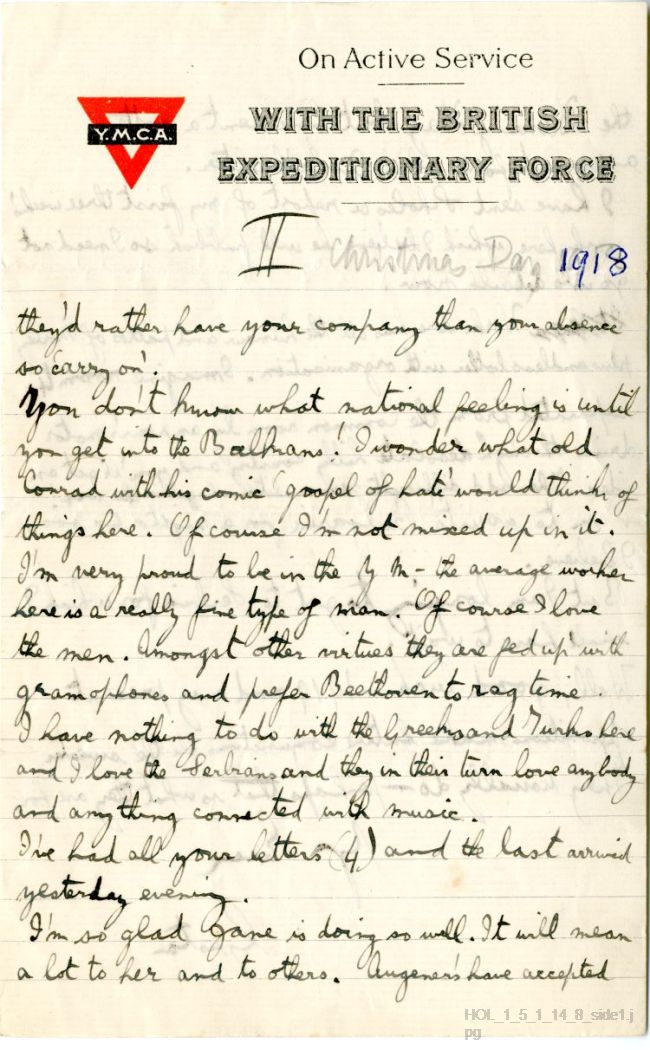 On Active Service
Y.M.C.A.
WITH THE BRITISH
EXPEDITIONARY FORCE
II Christmas Day 1918
they'd rather have your company than your absence
so 'carry on'.
You don't know what national feeling is until
you get into the Balkans! I wonder what old
Conrad with his comic 'gospel of hate' would think of
things here. Of course I'm not mixed up in it.
I'm very proud to be in the Y M. - the average worker
here is a really fine type of man. Of course I love
the men. Amongst other virtues they are 'fed up' with
gramophones and prefer Beethoven to rag time.
I have nothing to do with the Greeks and Turks here
and I love the Serbians and they in their turn love anybody
and anything connected with music.
I've had all your letters (4) and the last arrived
yesterday evening.
I'm so glad Jane is doing so well. It will mean
a lot to her and to others. Augener's have accepted
HOL_1_5_1_14_8_side1.j
pg